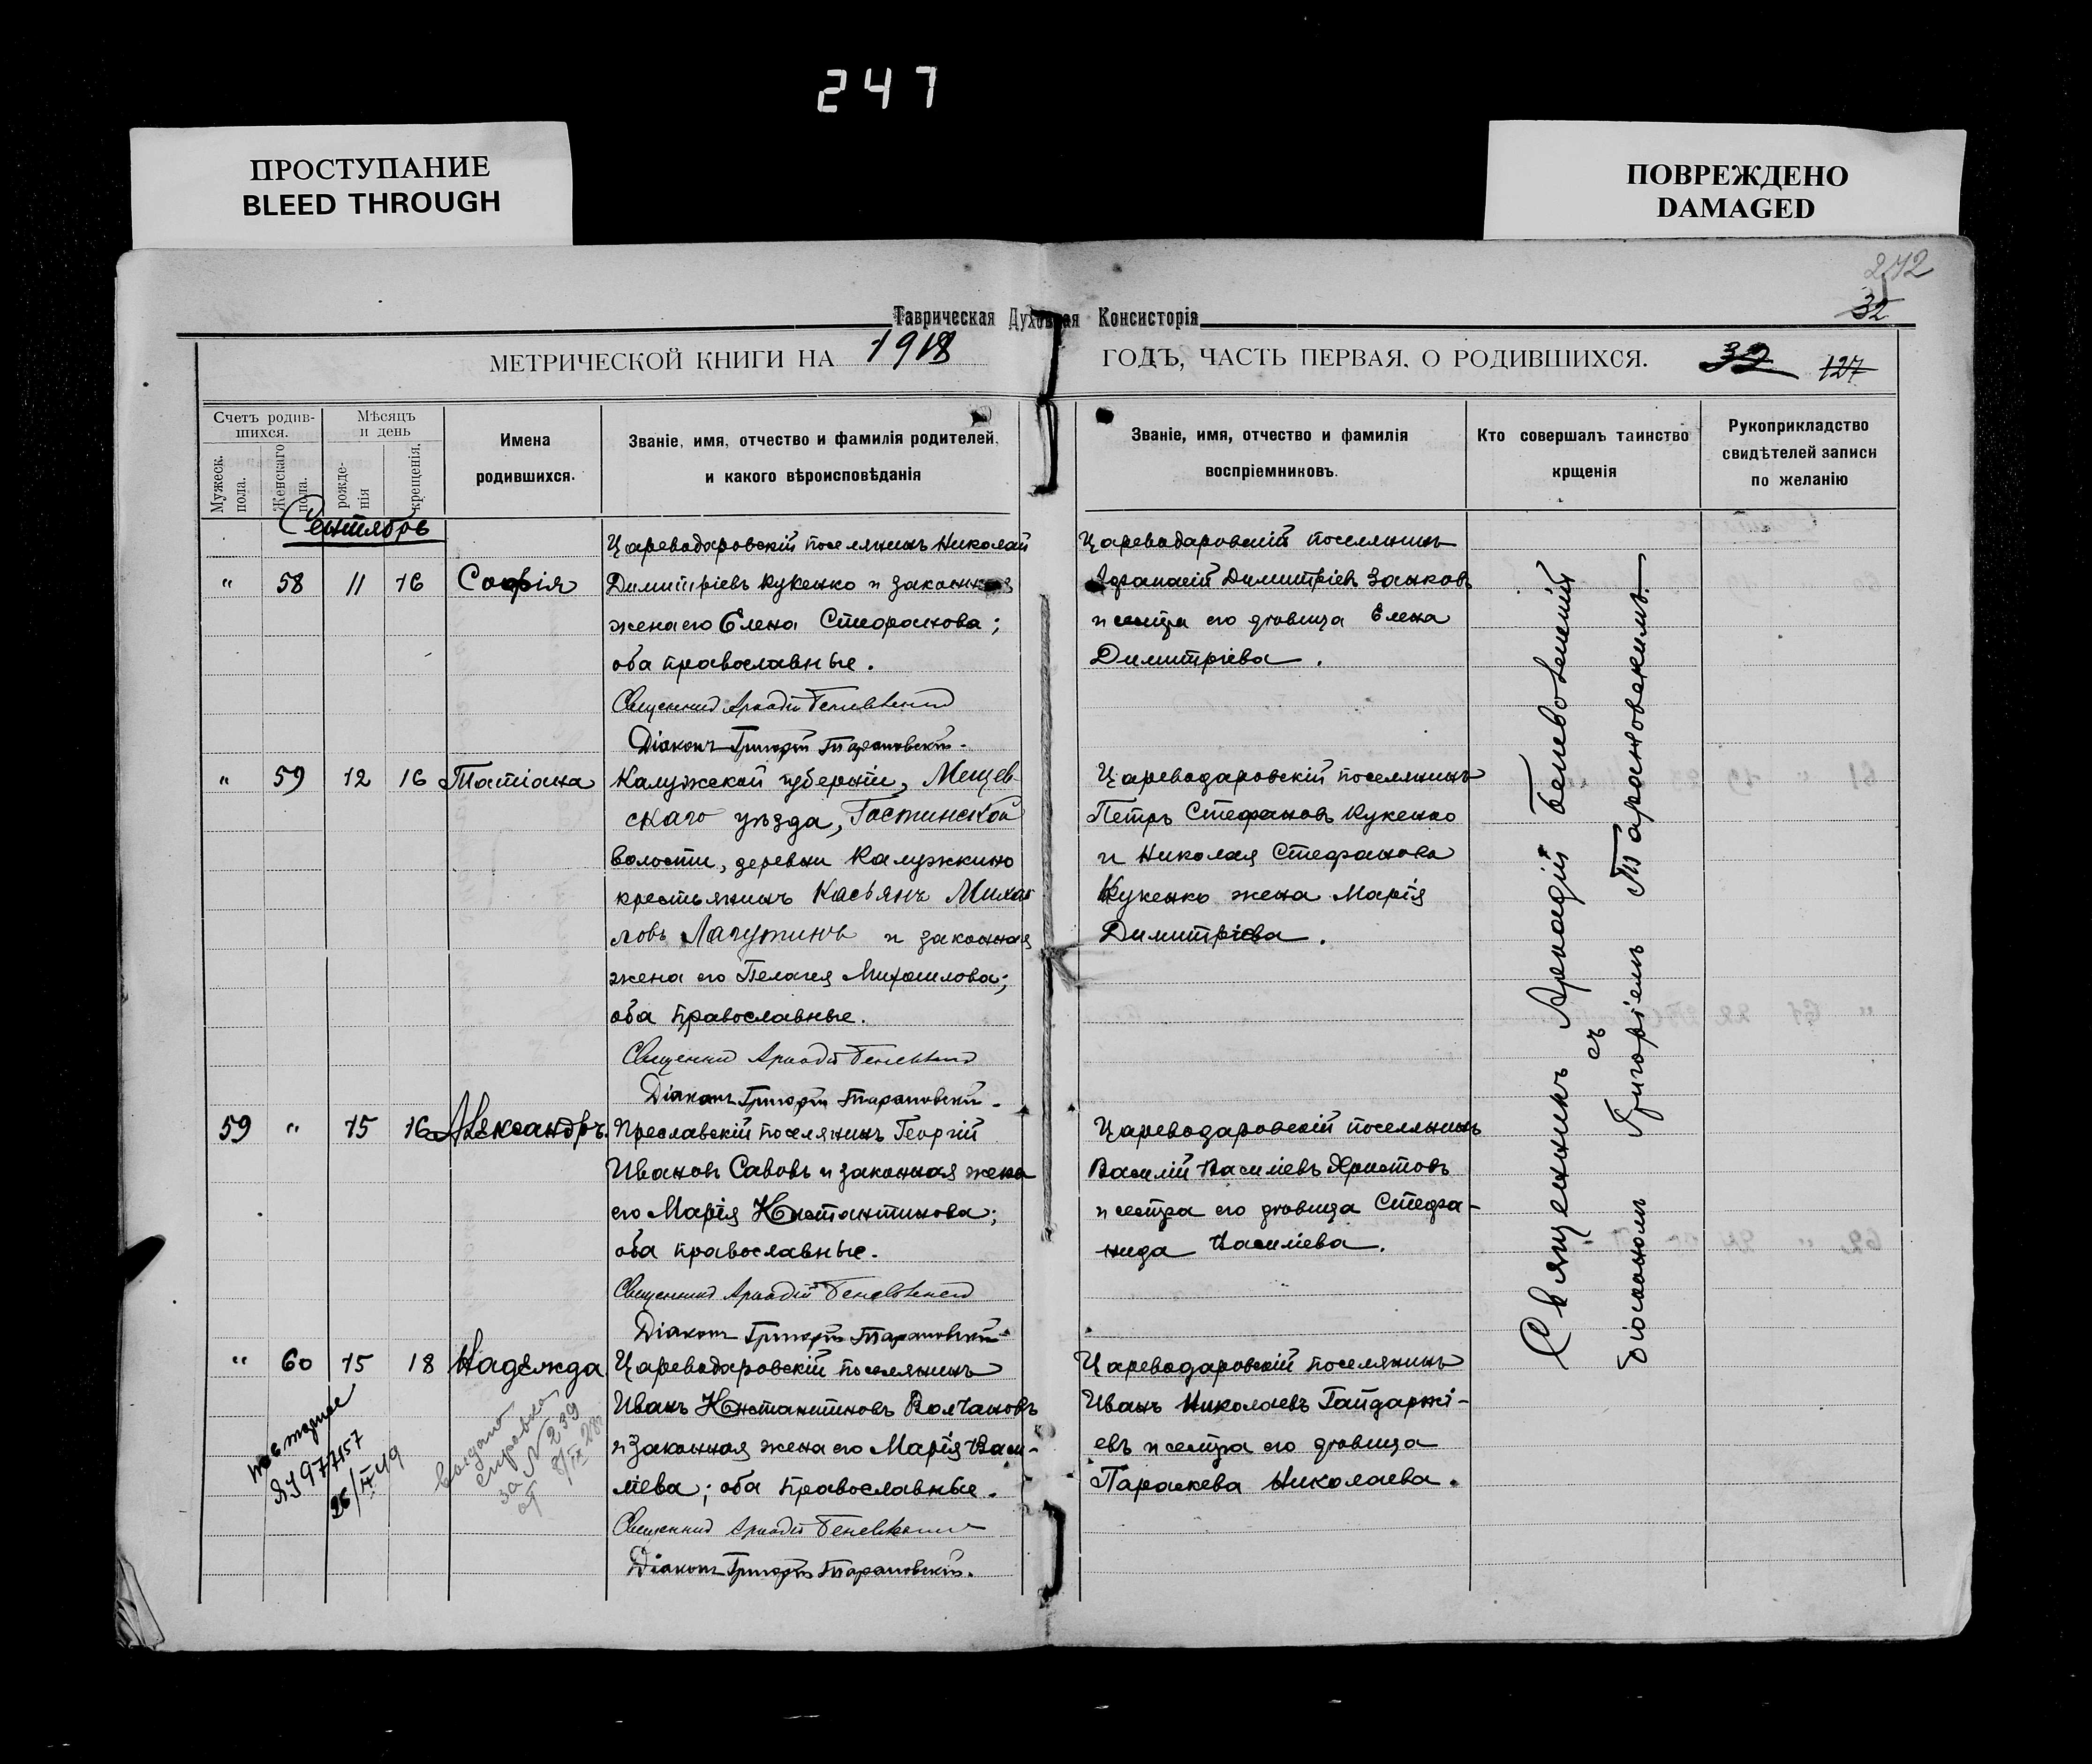 247
ПРОСТУПАНИЕ
BLEED THROUGH
ПОВРЕЖДЕНО
DAMAGED
242
32
Таврическая Духовная Консисторія
МЕТРИЧЕСКОЙ КНИГИ НА 1918 ГОДЪ, ЧАСТЬ ПЕРВАЯ, О РОДИВШИХСЯ.
32 127
Счетъ родив-
шихся.
Мужеск.
пола.
Женскаго
пола.
Мѣсяцъ
и день
рожде-
нія
крещенія.
Имена
родившихся.
Званіе, имя, отчество и фамилія родителей,
и какого вѣроисповѣданія
Званіе, имя, отчество и фамилія
воспріемниковъ.
Кто совершалъ таинство
крщенія
Рукоприкладство
свидѣтелей записи
по желанію
Сентябрь
" 58 11 16 Софія
Цареводаровскій поселянинъ Николай
Димитріевъ Кукенко и законная
жена его Елена Стефанова;
оба православные.
Священникъ Аркадій
Діаконъ Григорій Тарановскій.
Цареводаровскій поселянинъ
Афанасій Димитріевъ Занковъ
и сестра его дѣвица Елена
Димитріева.
" 59 12 16 Татіана
Калужской губерніи, Мещев
скаго уѣзда, Гостинской
волости, деревни Калужкино
крестьянинъ Касьянъ Михаи
ловъ Лагутинъ и законная
жена его Пелагея Михаилова;
оба православные.
Священникъ Аркадій
Діаконъ Григорій Тарановскій.
Цареводаровскій поселянинъ
Петръ Стефановъ Кукенко
и Николая Стефанова
Кукенко жена Марія
Димитріева.
59 " 15 16 Александръ.
Преславскій поселянинъ Георгій
Ивановъ Савовъ и законная жена
его Марія Константинова;
оба православные.
Священникъ Аркадій
Діаконъ Григорій Тарановскій
Цареводаровскій поселянинъ
Василій Василіевъ Христовъ
и сестра его дѣвица Стефа-
нида Василіева.
" 60 15 18 Надежда
Цареводаровскій поселянинъ
Иванъ Константиновъ Волчановъ
и законная жена его Марія Васи-
ліева; оба православные.
Священникъ Аркадій
Діаконъ Григорій Тарановскій.
Цареводаровскій поселянинъ
Иванъ Николаевъ Гайдаржі-
евъ и сестра его дѣвица
Параскева Николаева.
977157
26/IX 49
выдано
справка
за N 239
от 8/IX 28
Священникъ Аркадій
съ
Діакономъ Григоріемъ Тарановскимъ